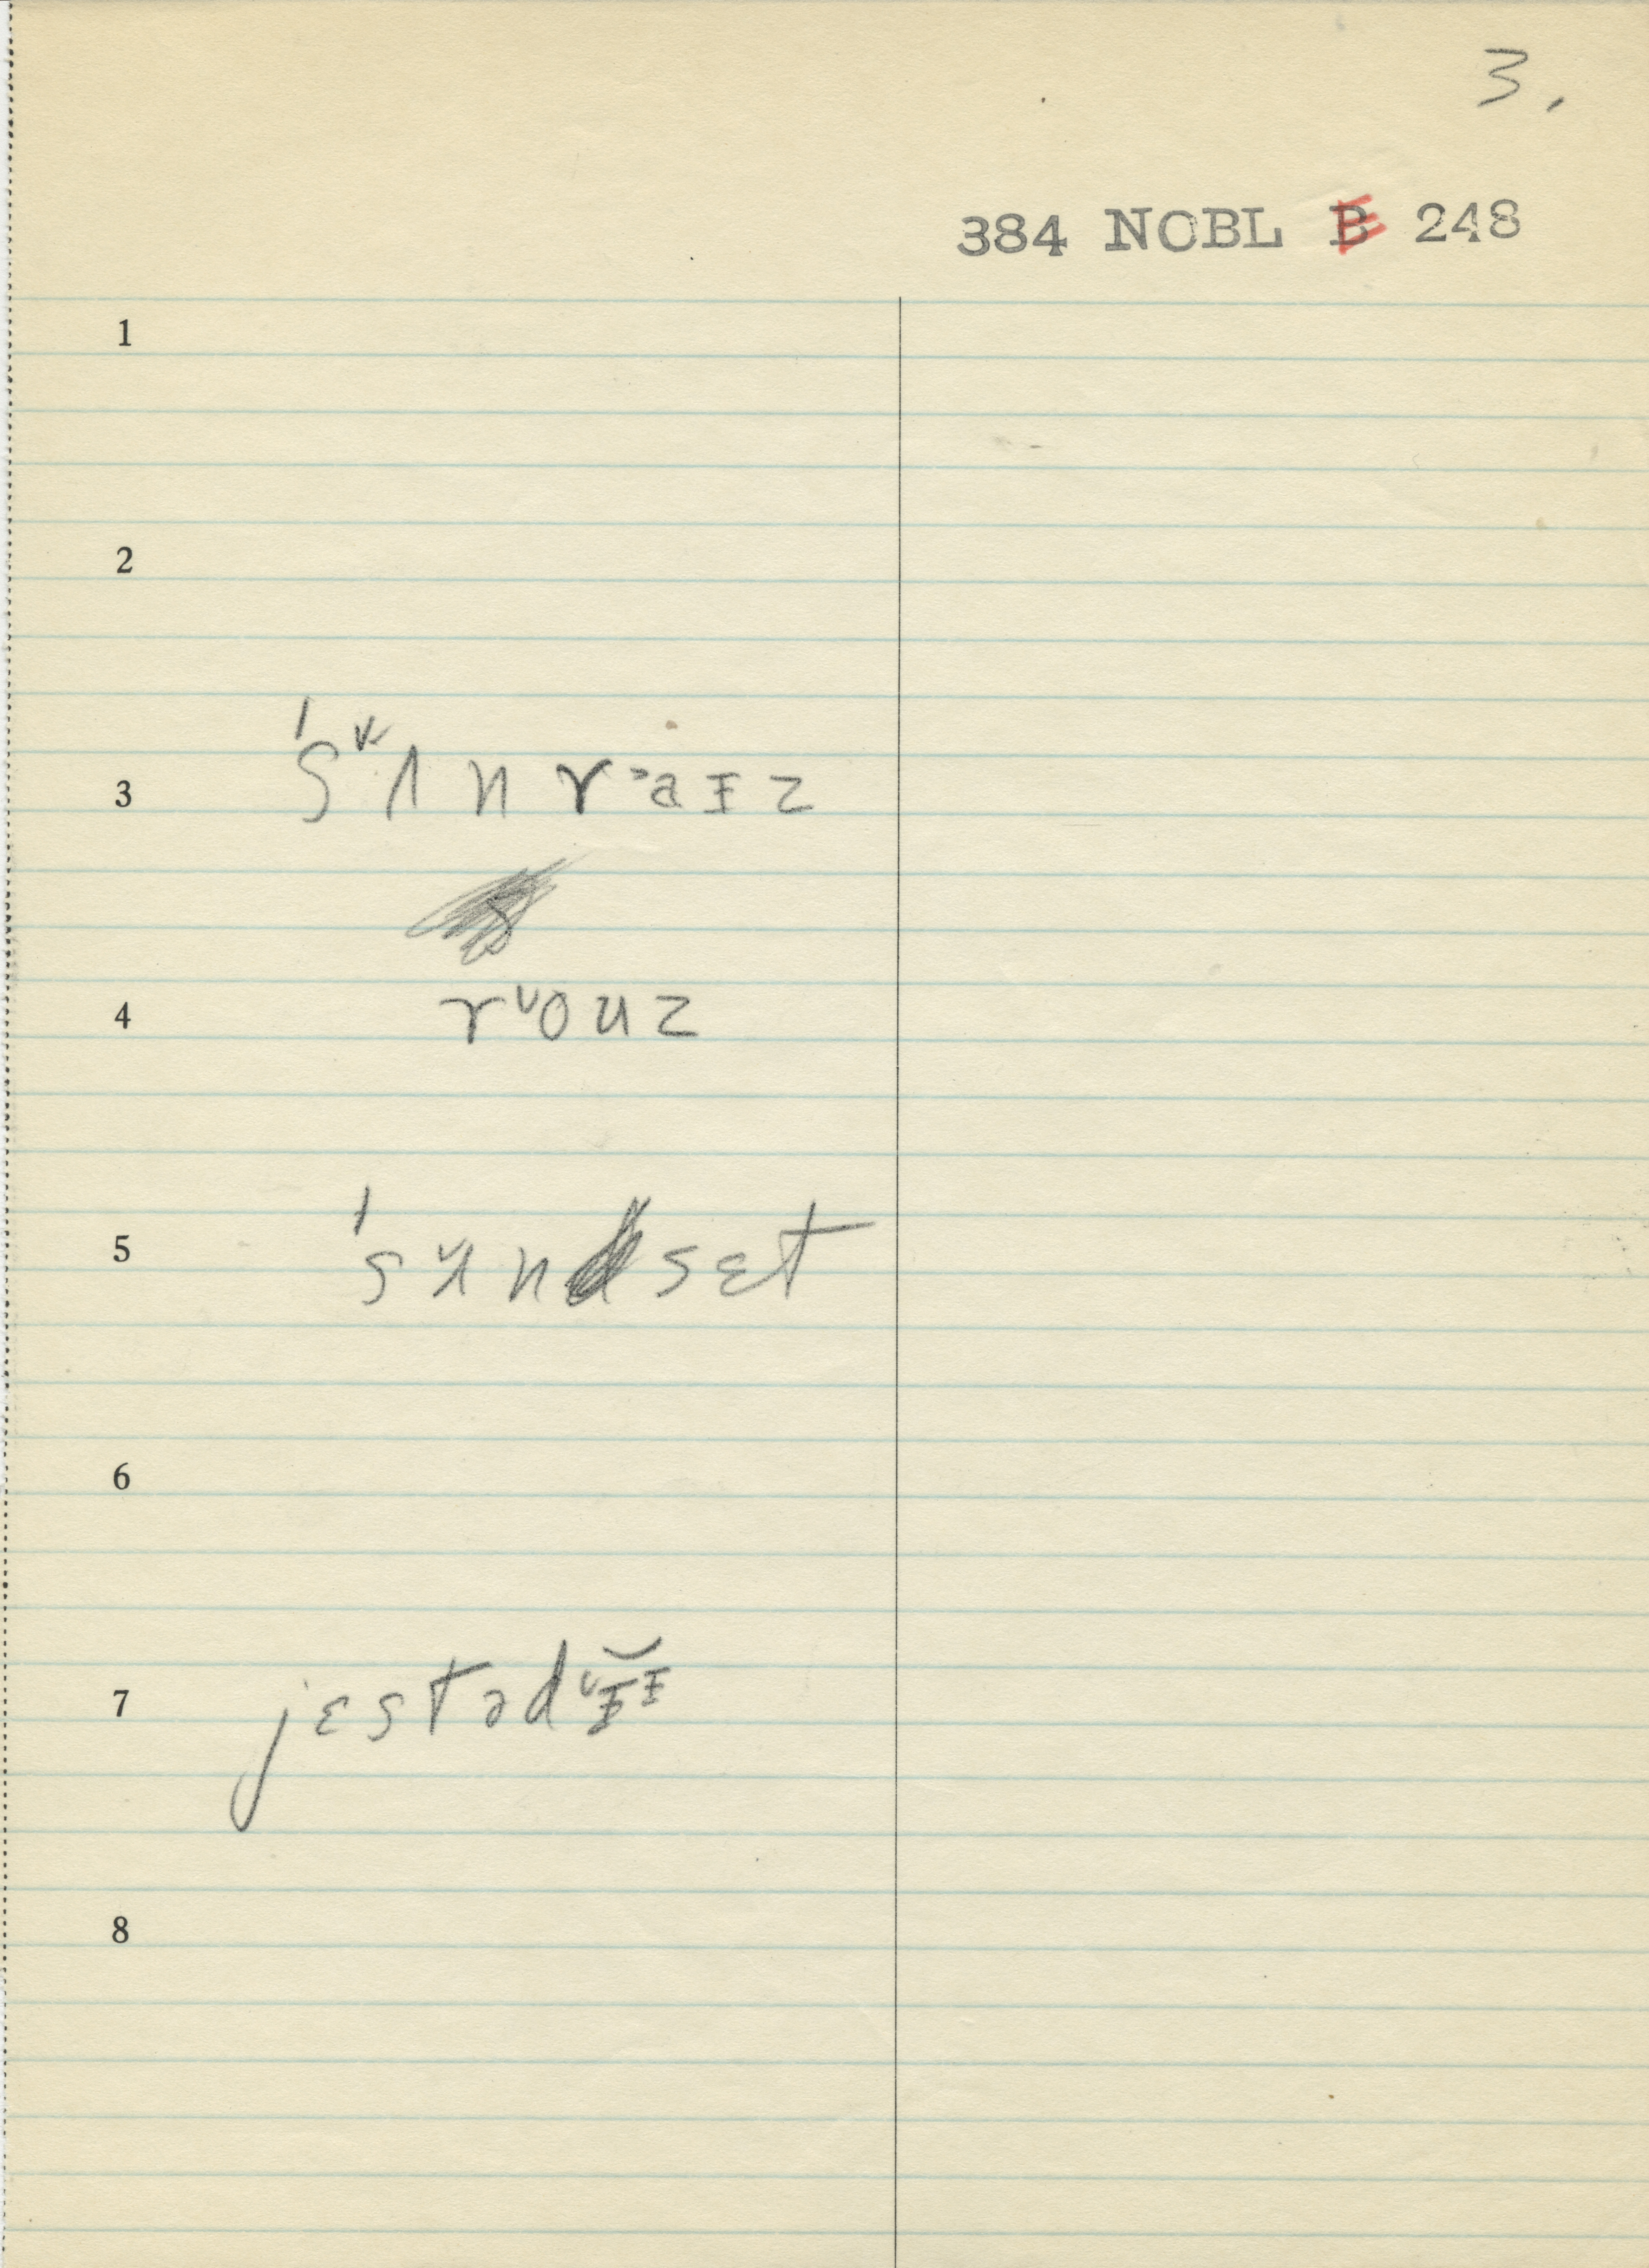 3.
384 NOBL B 248
1
2
3 ˈsʌ˅nr˃aɪz
4 r˅ouz
5 ˈsʌ˅nsɛt
6
7 jɛstəd˅ɪɪ
8